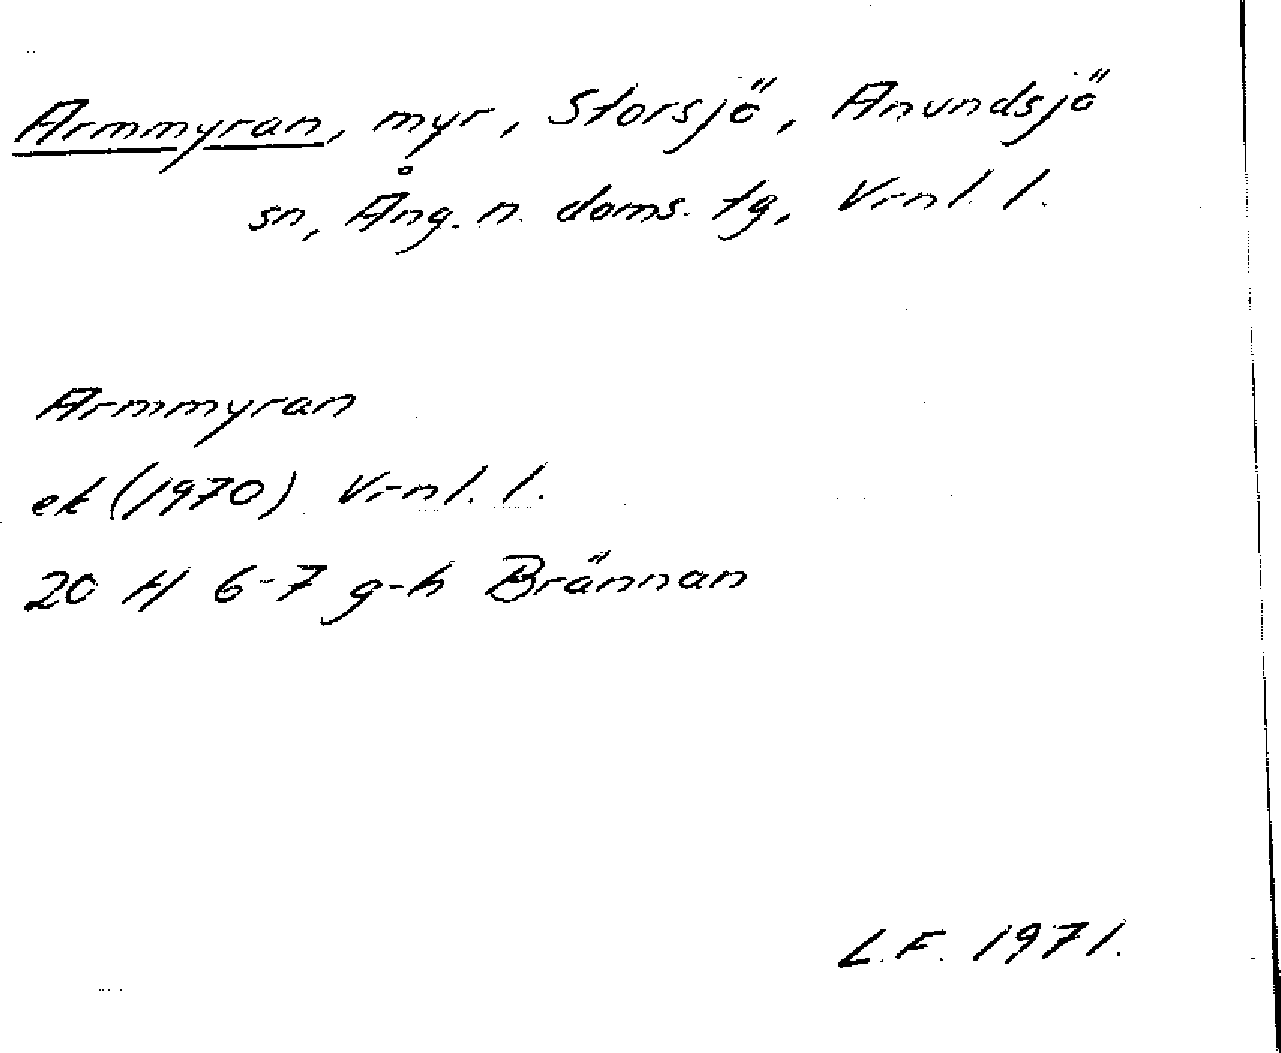 Armmyran, myr, Storsjö, Anundsjö
sn, Ång. n. doms. tg, Vrnl. l.
Armmyran
ek (1970) Vrnl. l.
20 H 6-7 g-h Brännan
L.F. 1971.